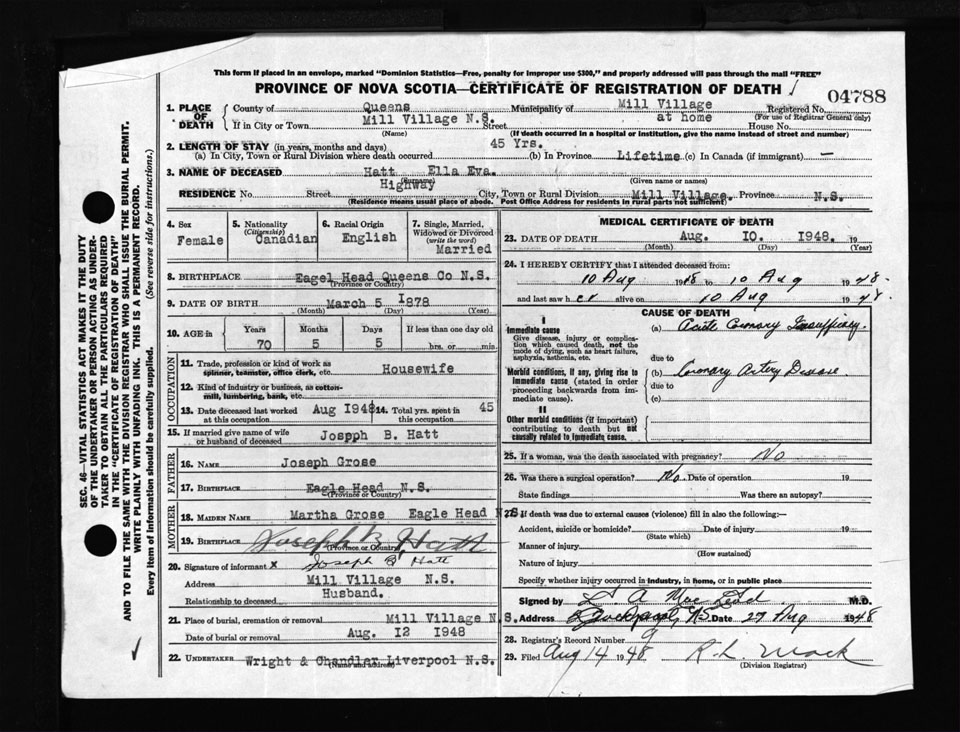 This form if placed in an envelope, marked "Dominion Statistics—Free, penalty for improper use $300," and properly addressed will pass through the mail "FREE"
PROVINCE OF NOVA SCOTIA—CERTIFICATE OF REGISTRATION OF DEATH
04788
1. PLACE OF DEATH County of Queens Municipality of Mill Village Registered No.
(For use of Registrar General only)
If in City or Town Mill Village N.S. Street at home House No.
(Name) (If death occurred in a hospital or institution, give the name instead of street and number)
2. LENGTH OF STAY (in years, months and days)
(a) In City, Town or Rural Division where death occurred 45 Yrs. (b) In Province Lifetime (c) In Canada (if immigrant) —
3. NAME OF DECEASED Hatt Ella Eva.
(Surname) (Given name or names)
RESIDENCE No. Street Highway City, Town or Rural Division Mill Village. Province N.S.
(Residence means usual place of abode. Post Office Address for residents in rural parts not sufficient)
4. Sex Female
5. Nationality (Citizenship) Canadian
6. Racial Origin English
7. Single, Married, Widowed or Divorced (write the word) Married
8. BIRTHPLACE Eagel Head Queens Co N.S.
(Province or Country)
9. DATE OF BIRTH March 5 I978
(Month) (Day) (Year)
10. AGE in Years Months Days If less than one day old
70 5 5 hrs. or min.
OCCUPATION
11. Trade, profession or kind of work as spinner, teamster, office clerk, etc. Housewife
12. Kind of industry or business, as cotton-mill, lumbering, bank, etc.
13. Date deceased last worked at this occupation Aug I948
14. Total yrs. spent in this occupation 45
15. If married give name of wife or husband of deceased Jospph B. Hatt
FATHER
16. NAME Joseph Grose
17. BIRTHPLACE Eagle Head N.S.
(Province or Country)
MOTHER
18. MAIDEN NAME Martha Grose Eagle Head N.S.
19. BIRTHPLACE Joseph B Hatt
(Province or Country)
20. Signature of informant x Joseph B Hatt
Address Mill Village N.S.
Relationship to deceased Husband.
21. Place of burial, cremation or removal Mill Village N.S.
Date of burial or removal Aug. I2 I948
22. UNDERTAKER Wright & Chandler Liverpool N.S.
(Name and address)
MEDICAL CERTIFICATE OF DEATH
23. DATE OF DEATH Aug. IO. I948. 19
(Month) (Day) (Year)
24. I HEREBY CERTIFY that I attended deceased from:
10 Aug 1948 to 10 Aug 1948.
and last saw her alive on 10 Aug 1948.
CAUSE OF DEATH
I
Immediate cause
Give disease, injury or complication which caused death, not the mode of dying, such as heart failure, asphyxia, asthenia, etc.
(a) Acute Coronary Insufficiency.
due to
Morbid conditions, if any, giving rise to immediate cause (stated in order proceeding backwards from immediate cause).
(b) Coronary Artery Disease.
due to
(c)
II
Other morbid conditions (if important) contributing to death but not causally related to immediate cause.
25. If a woman, was the death associated with pregnancy? No
26. Was there a surgical operation? No. Date of operation 19
State findings Was there an autopsy?
27. If death was due to external causes (violence) fill in also the following:—
Accident, suicide or homicide? Date of injury 19
(State which)
Manner of injury
(How sustained)
Nature of injury
Specify whether injury occurred in industry, in home, or in public place
Signed by A MacLeod M.D.
Address N.S. Date 27 Aug 1948
28. Registrar's Record Number 9
29. Filed Aug 14 1948 R. L. Mack
(Division Registrar)
SEC. 46—VITAL STATISTICS ACT MAKES IT THE DUTY
OF THE UNDERTAKER OR PERSON ACTING AS UNDER-
TAKER TO OBTAIN ALL THE PARTICULARS REQUIRED
IN THE "CERTIFICATE OF REGISTRATION OF DEATH"
AND TO FILE THE SAME WITH THE DIVISION REGISTRAR WHO SHALL ISSUE THE BURIAL PERMIT.
WRITE PLAINLY WITH UNFADING INK. THIS IS A PERMANENT RECORD.
Every item of information should be carefully supplied. (See reverse side for instructions.)